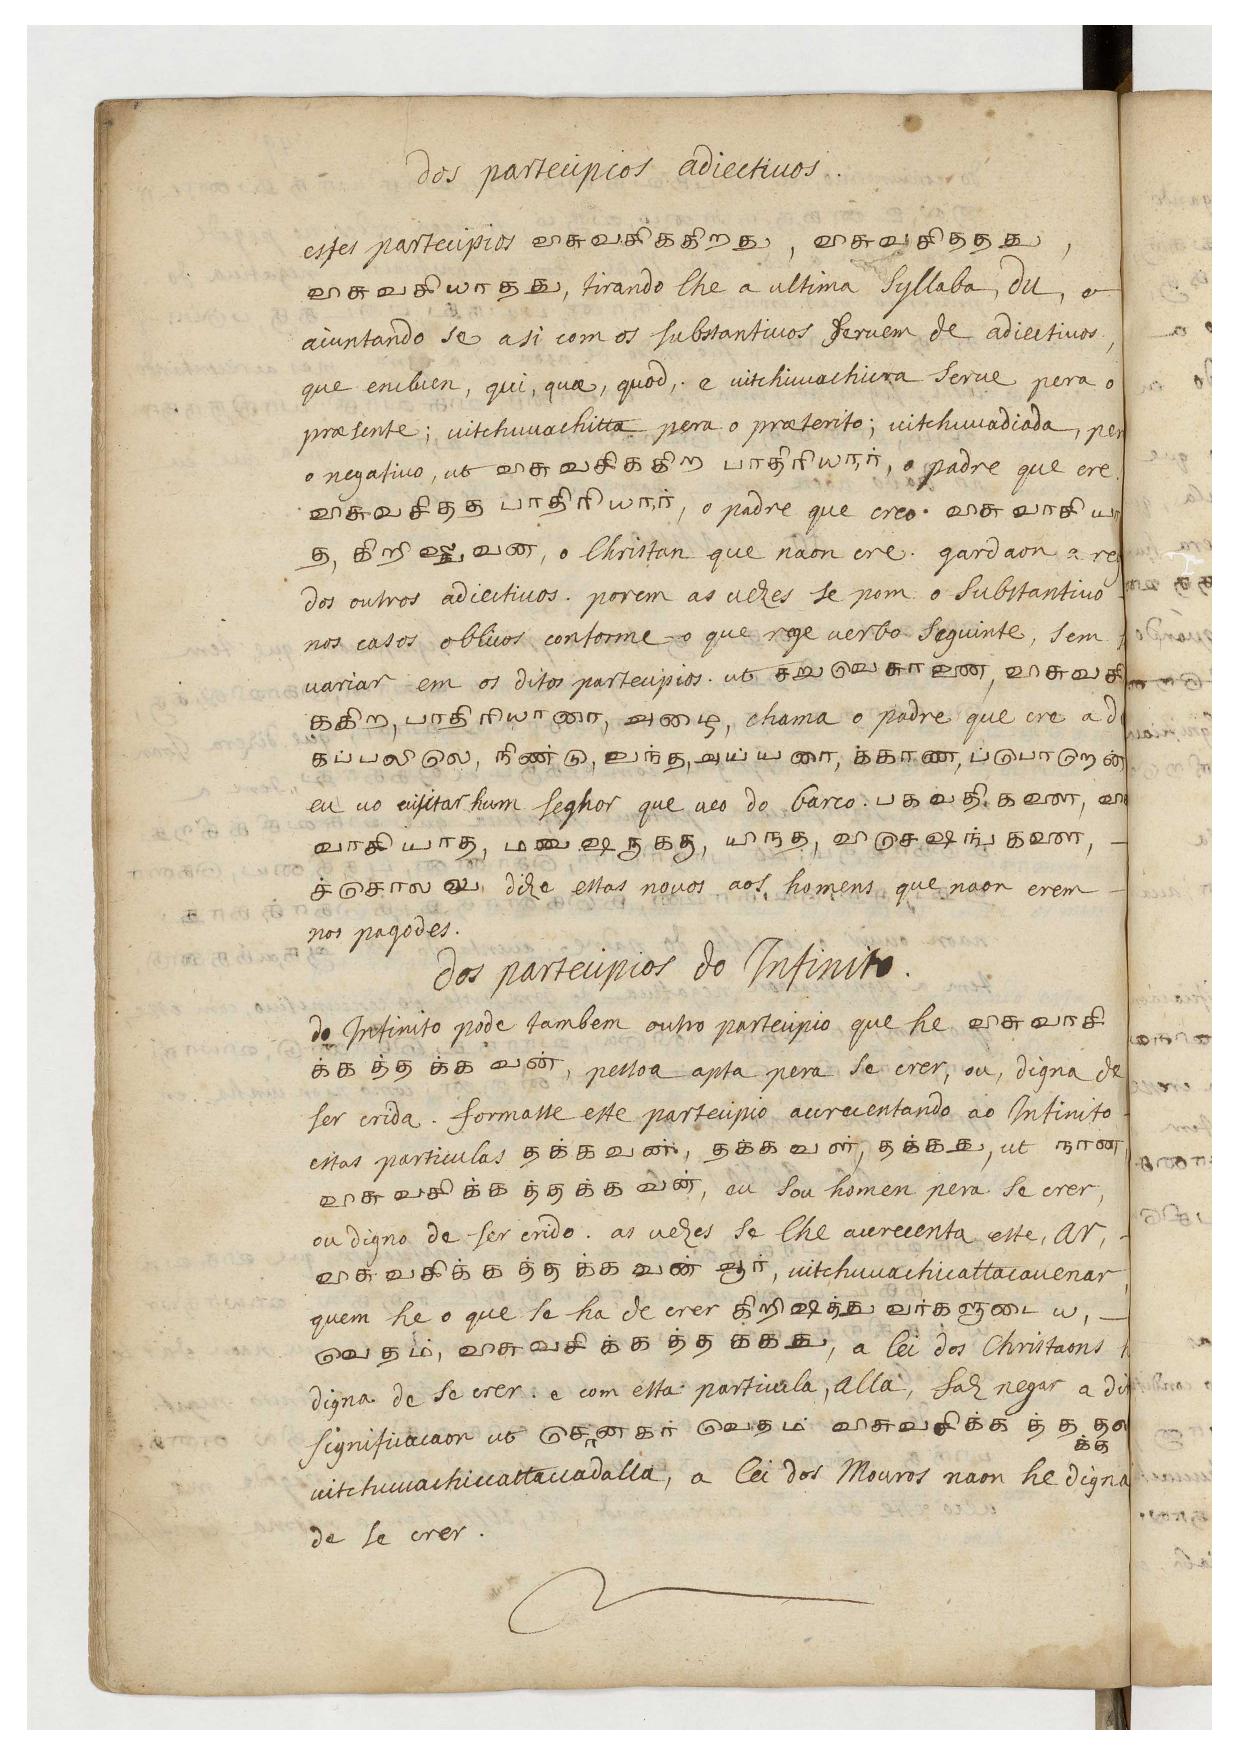 dos partecipios adiectiuos.
estes partecipios விசுவசிககிறது, விசுவசிததது,
விசுவசியாதது, tirando lhe a ultima Syllaba, du, e
aiuntando se asi com os substantiuos seruem de adiectiuos,
que enchem, qui, quæ, quod, e uitchuuachicra serue pera o
præsente; uitchuuachitta pera o præterito; uitchuuadiada, per
o negatiuo, ut விசுவசிககிற பாதிரியார், o padre que cre.
விசுவசிதத பாதிரியார், o padre que creo. விசுவாசியா
த, கிறிஷ்துவன, o Christan que naon cre. gardaon a reg
dos outros adiectiuos. porem as uezes se pom o substantiuo
nos casos obliuos conforme o que rege uerbo seguinte, sem
uariar em os ditos partecipios. ut விசுவசி
ககிற, பாதிரியாரை, அழை, chama o padre que cre a d
கப்பலிலெ, நிண்டு, வந்த, அய்யரை, க்காண, ப்போறென்
eu uo uisitar hum seghor que ueo do barco. பகவதி,களை, வி
வாசியாத, மனுஷருககு, யிநத, விசெஷங்களை,
ச்சொலலு dize estas nouos aos homens que naon crem
nos pagodes.
dos partecipios do Infinito.
do Infinito pode tambem outro partecipio que he விசுவாசி
க்கத்தக்கவன், pessoa apta pera se crer, ou, digna de
ser crida. formasse este partecipio accrecentando ao Infinito
estas particulas தக்கவன், தக்கவள், தக்கது, ut நான
விசுவசிக்கத்தக்கவன், eu sou homen pera se crer,
ou digno de ser crido. as uezes se lhe accrecenta este, ar,
விசுவசிக்கத்தக்கவன் ஆர், uitchuuachicattacauenar,
quem he o que se ha de crer கிறிஷ்த்துவர்களுடைய,
வெதம், விசுவசிக்கத்தக்கது, a lei dos Christaons
digna de se crer. e com esta particula, alla, faz negar a di
significacaon ut சொனகர் வெதம் விசுவசிக்கத்த
க்க
uitchuuachicattacadalla, a lei dos Mouros naon he digna
de se crer.